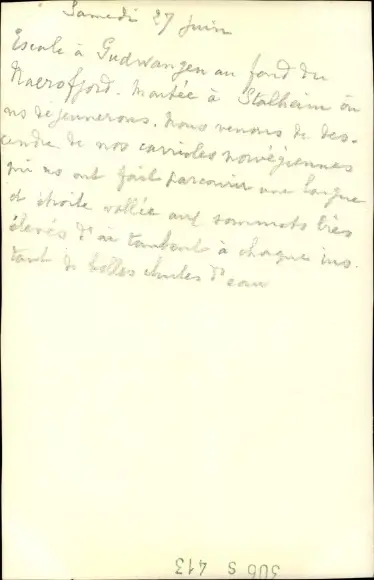 Samedi 27 juin
Escale à Gudwangen au fond du
Naerofjord. Montée à Stalheim où
ns déjeunerons. Nous venons de des-
cendre de nos carrioles norvégiennes
qui ns ont fait parcourir une longue
et étroite vallée aux sommets très
élevés d'où tombent à chaque ins-
tant de belles chutes d'eau
306 S 413